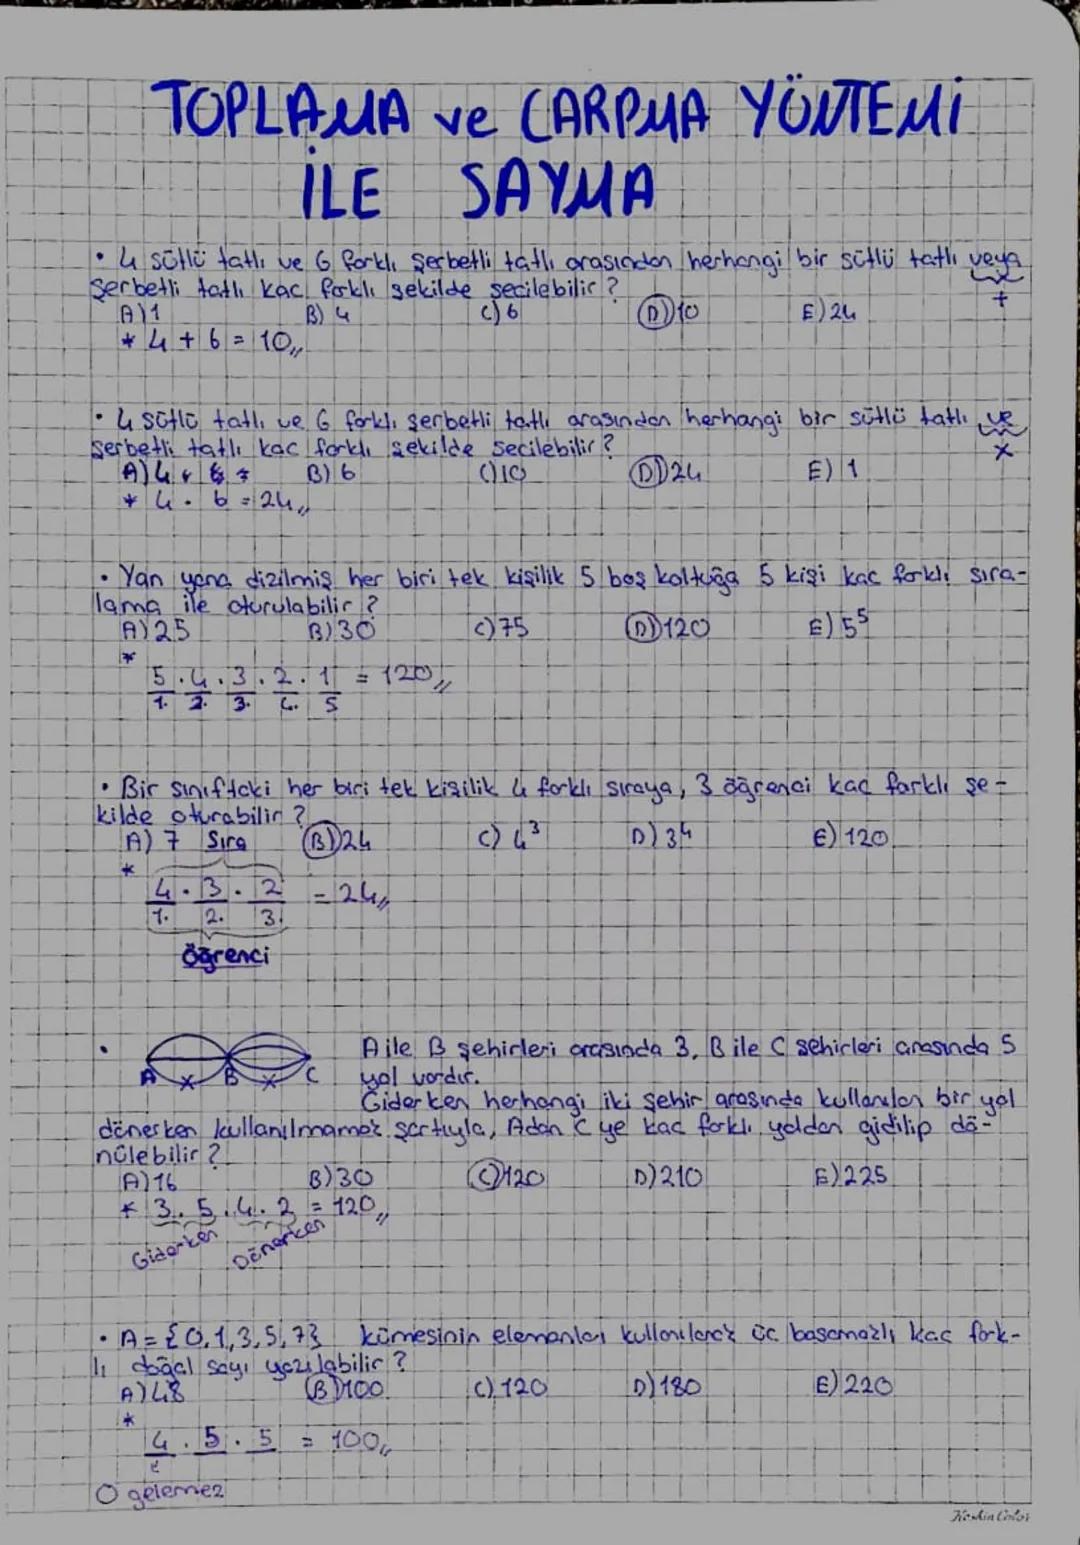 TOPLAMA ve ÇARPMA YÖNTEMİ
İLE SAYMA
• 4 sütlü tatlı ve 6 farklı şerbetli tatlı arasından herhangi bir sütlü tatlı veya
şerbetli tatlı kaç farklı şekilde seçilebilir?
+
A) 1 B) 4 C) 6 D) 10 E) 24
* 4 + 6 = 10,,
• 4 sütlü tatlı ve 6 farklı şerbetli tatlı arasından herhangi bir sütlü tatlı ve
şerbetli tatlı kaç farklı şekilde seçilebilir?
x
A) 4 B) 6 C) 10 D) 24 E) 1
* 4 . 6 = 24,,
• Yan yana dizilmiş her biri tek kişilik 5 boş koltuğa 5 kişi kaç farklı sıra-
lama ile oturulabilir?
A) 25 B) 30 C) 75 D) 120 E) 5⁵
*
5 . 4 . 3 . 2 . 1 = 120,,
1. 2. 3. 4. 5
• Bir sınıftaki her biri tek kişilik 4 farklı sıraya, 3 öğrenci kaç farklı şe-
kilde oturabilir?
A) 7 Sıra B) 24 C) 4³ D) 3⁴ E) 120
*
4 . 3 . 2 = 24,,
1. 2. 3.
öğrenci
• A ile B şehirleri arasında 3, B ile C şehirleri arasında 5
A x B x C yol vardır.
Giderken herhangi iki şehir arasında kullanılan bir yol
dönerken kullanılmamak şartıyla, A dan C ye kaç farklı yoldan gidilip dö-
nülebilir?
A) 16 B) 30 C) 120 D) 210 E) 225
* 3 . 5 . 4 . 2 = 120,,
Giderken Dönerken
• A = {0,1,3,5,7} kümesinin elemanları kullanılarak üç basamaklı kaç fark-
lı doğal sayı yazılabilir?
A) 48 B) 100 C) 120 D) 180 E) 220
*
4 . 5 . 5 = 100,,
0 gelemez
Keskin Color